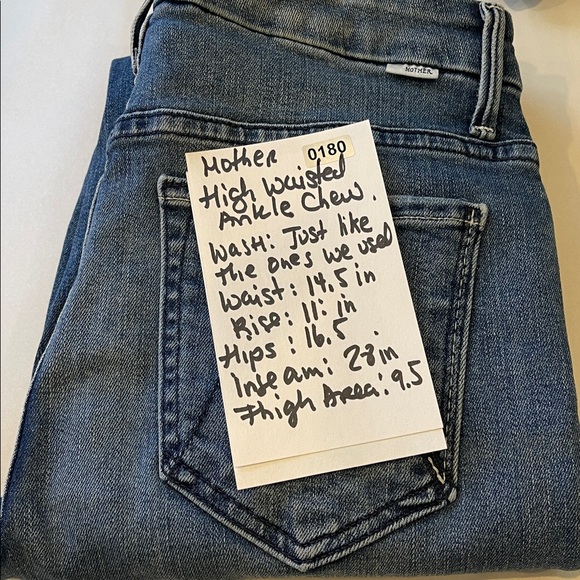 MOTHER
Mother
0180
High Waisted
Ankle Chew.
Wash: Just like
the ones we used
Waist: 14.5 in
Rise: 11: in
Hips: 16.5
Inseam: 28 in
Thigh Area: 9.5